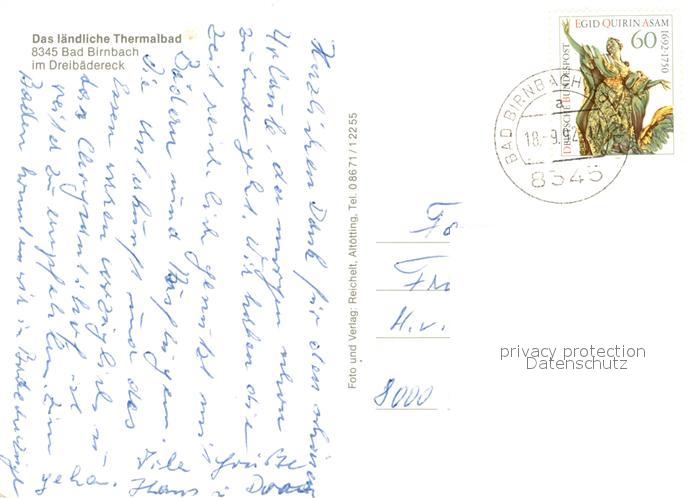 Das ländliche Thermalbad
8345 Bad Birnbach
im Dreibädereck
Herzlichen Dank für den schönen
Urlaub, der morgen schon
zu Ende geht. Wir haben die
Zeit reichlich genützt mit
Bädern und
Die Unterkunft und das
Essen waren vorzüglich
der ist
zu empfehlen. Zum
Baden konnten wir in Badekleidung
gehen. Viele Grüße
Hans u.
Foto und Verlag: Reichelt, Altötting, Tel. 08671/12255
EGID QUIRIN ASAM
1692-1750
60
DEUTSCHE BUNDESPOST
BAD BIRNBACH
a
18.-9.92
8345
Fa
H. v.
8000
privacy protection
Datenschutz